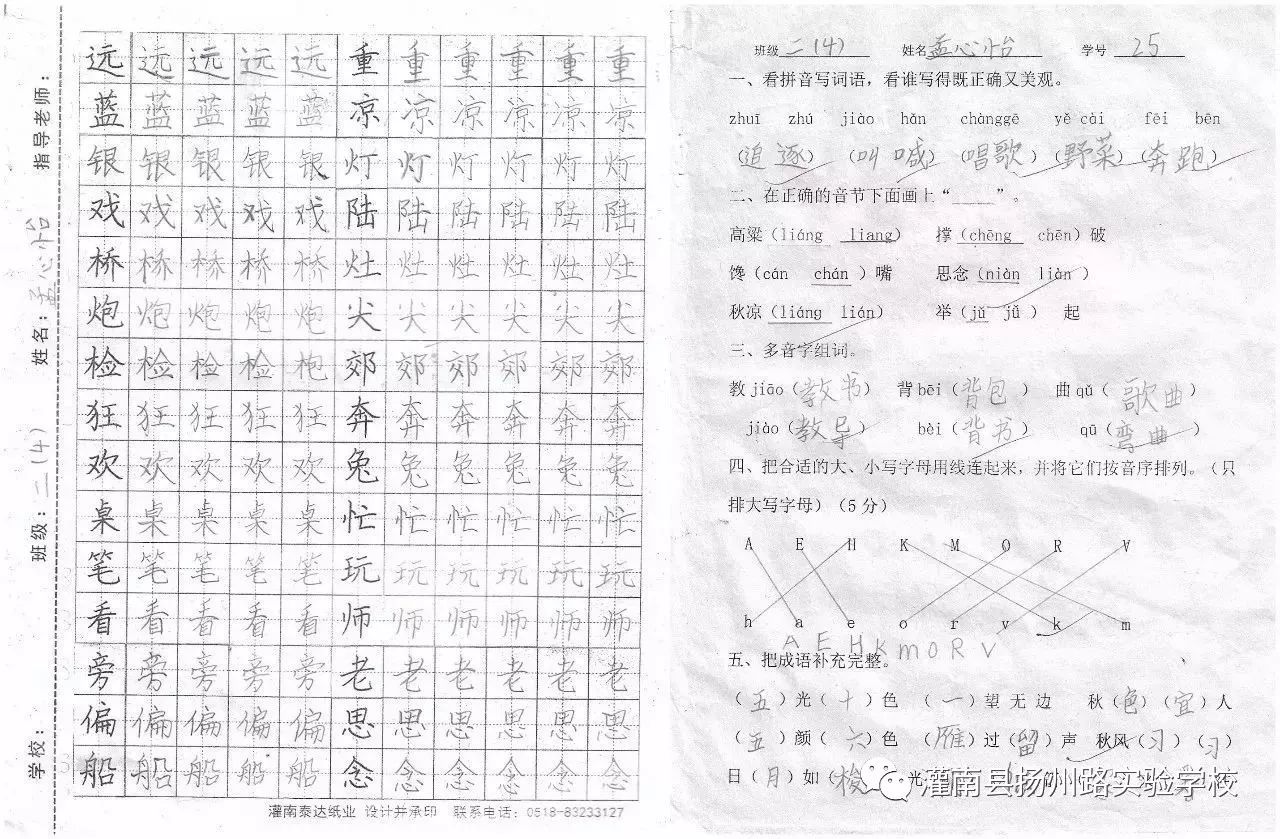 学校： 班级：二（4） 姓名：孟心怡 指导老师：
远远远远远重重重重重重
蓝蓝蓝蓝蓝凉凉凉凉凉凉
银银银银银灯灯灯灯灯灯
戏戏戏戏戏陆陆陆陆陆陆
桥桥桥桥桥灶灶灶灶灶灶
炮炮炮炮炮尖尖尖尖尖尖
检检检检枹郊郊郊郊郊郊
狂狂狂狂狂奔奔奔奔奔奔
欢欢欢欢欢兔兔兔兔兔兔
桌桌桌桌桌忙忙忙忙忙忙
笔笔笔笔笔玩玩玩玩玩玩
看看看看看师师师师师师
旁旁旁旁旁老老老老老老
偏偏偏偏偏思思思思思思
船船船船船念念念念念念
灌南泰达纸业 设计并承印 联系电话：0518-83233127
班级 二（4） 姓名 孟心怡 学号 25
一、看拼音写词语，看谁写得既正确又美观。
zhuī zhú jiào hǎn chànggē yě cài fēi bēn
（追逐）（叫喊）（唱歌）（野菜）（奔跑）
二、在正确的音节下面画上“_____”。
高粱（liáng liang） 撑（chēng chēn）破
馋（cán chán）嘴 思念（niàn liàn）
秋凉（liáng lián） 举（jǔ jǔ） 起
三、多音字组词。
教 jiāo（教书） 背 bēi（背包） 曲 qǔ（歌曲）
jiào（教导） bèi（背书） qū（弯曲）
四、把合适的大、小写字母用线连起来，并将它们按音序排列。（只
排大写字母）（5分）
A E H K M O R V
h a e o r v k m
A E H K m O R V
五、把成语补充完整。
（五）光（十）色 （一）望 无 边 秋（色）（宜）人
（五）颜（六）色 （雁）过（留）声 秋风（习）（习）
日（月）如（梭 光
灌南县扬州路实验学校